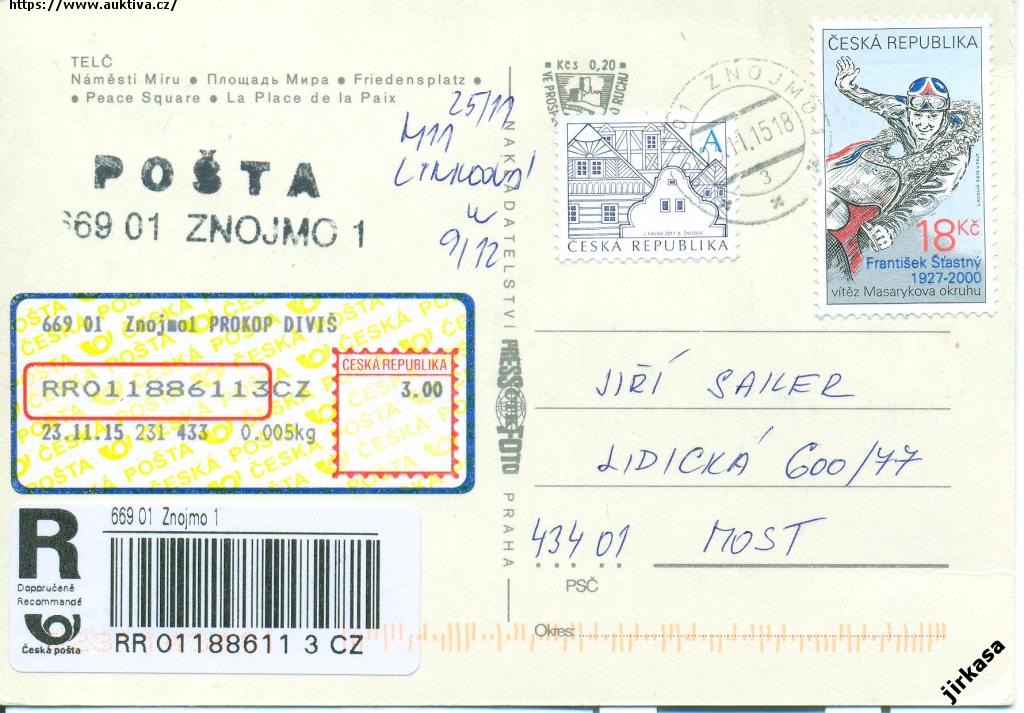 https://www.auktiva.cz/
TELČ
Náměstí Míru ● Площадь Мира ● Friedensplatz ●
● Peace Square ● La Place de la Paix
25/11
POŠTA
669 01 ZNOJMO 1
9/12
669 01 Znojmo1 PROKOP DIVIŠ
ČESKÁ REPUBLIKA
RR011886113CZ
3.00
23.11.15 231 433 0.005kg
ČESKÁ POŠTA
R
669 01 Znojmo 1
Doporučeně
Recommandé
Česká pošta
RR 01188611 3 CZ
NAKLADATELSTVÍ PRESSFOTO PRAHA
Kčs 0,20
ZNOJMO 1
11.15 18
3
A
J. KAVAN 2011 B. ŠNEIDER
ČESKÁ REPUBLIKA
ČESKÁ REPUBLIKA
18 Kč
František Šťastný
1927-2000
vítěz Masarykova okruhu
JIŘÍ SAILER
LIDICKÁ 600/77
434 01 MOST
PSČ
Okres:
jirkasa